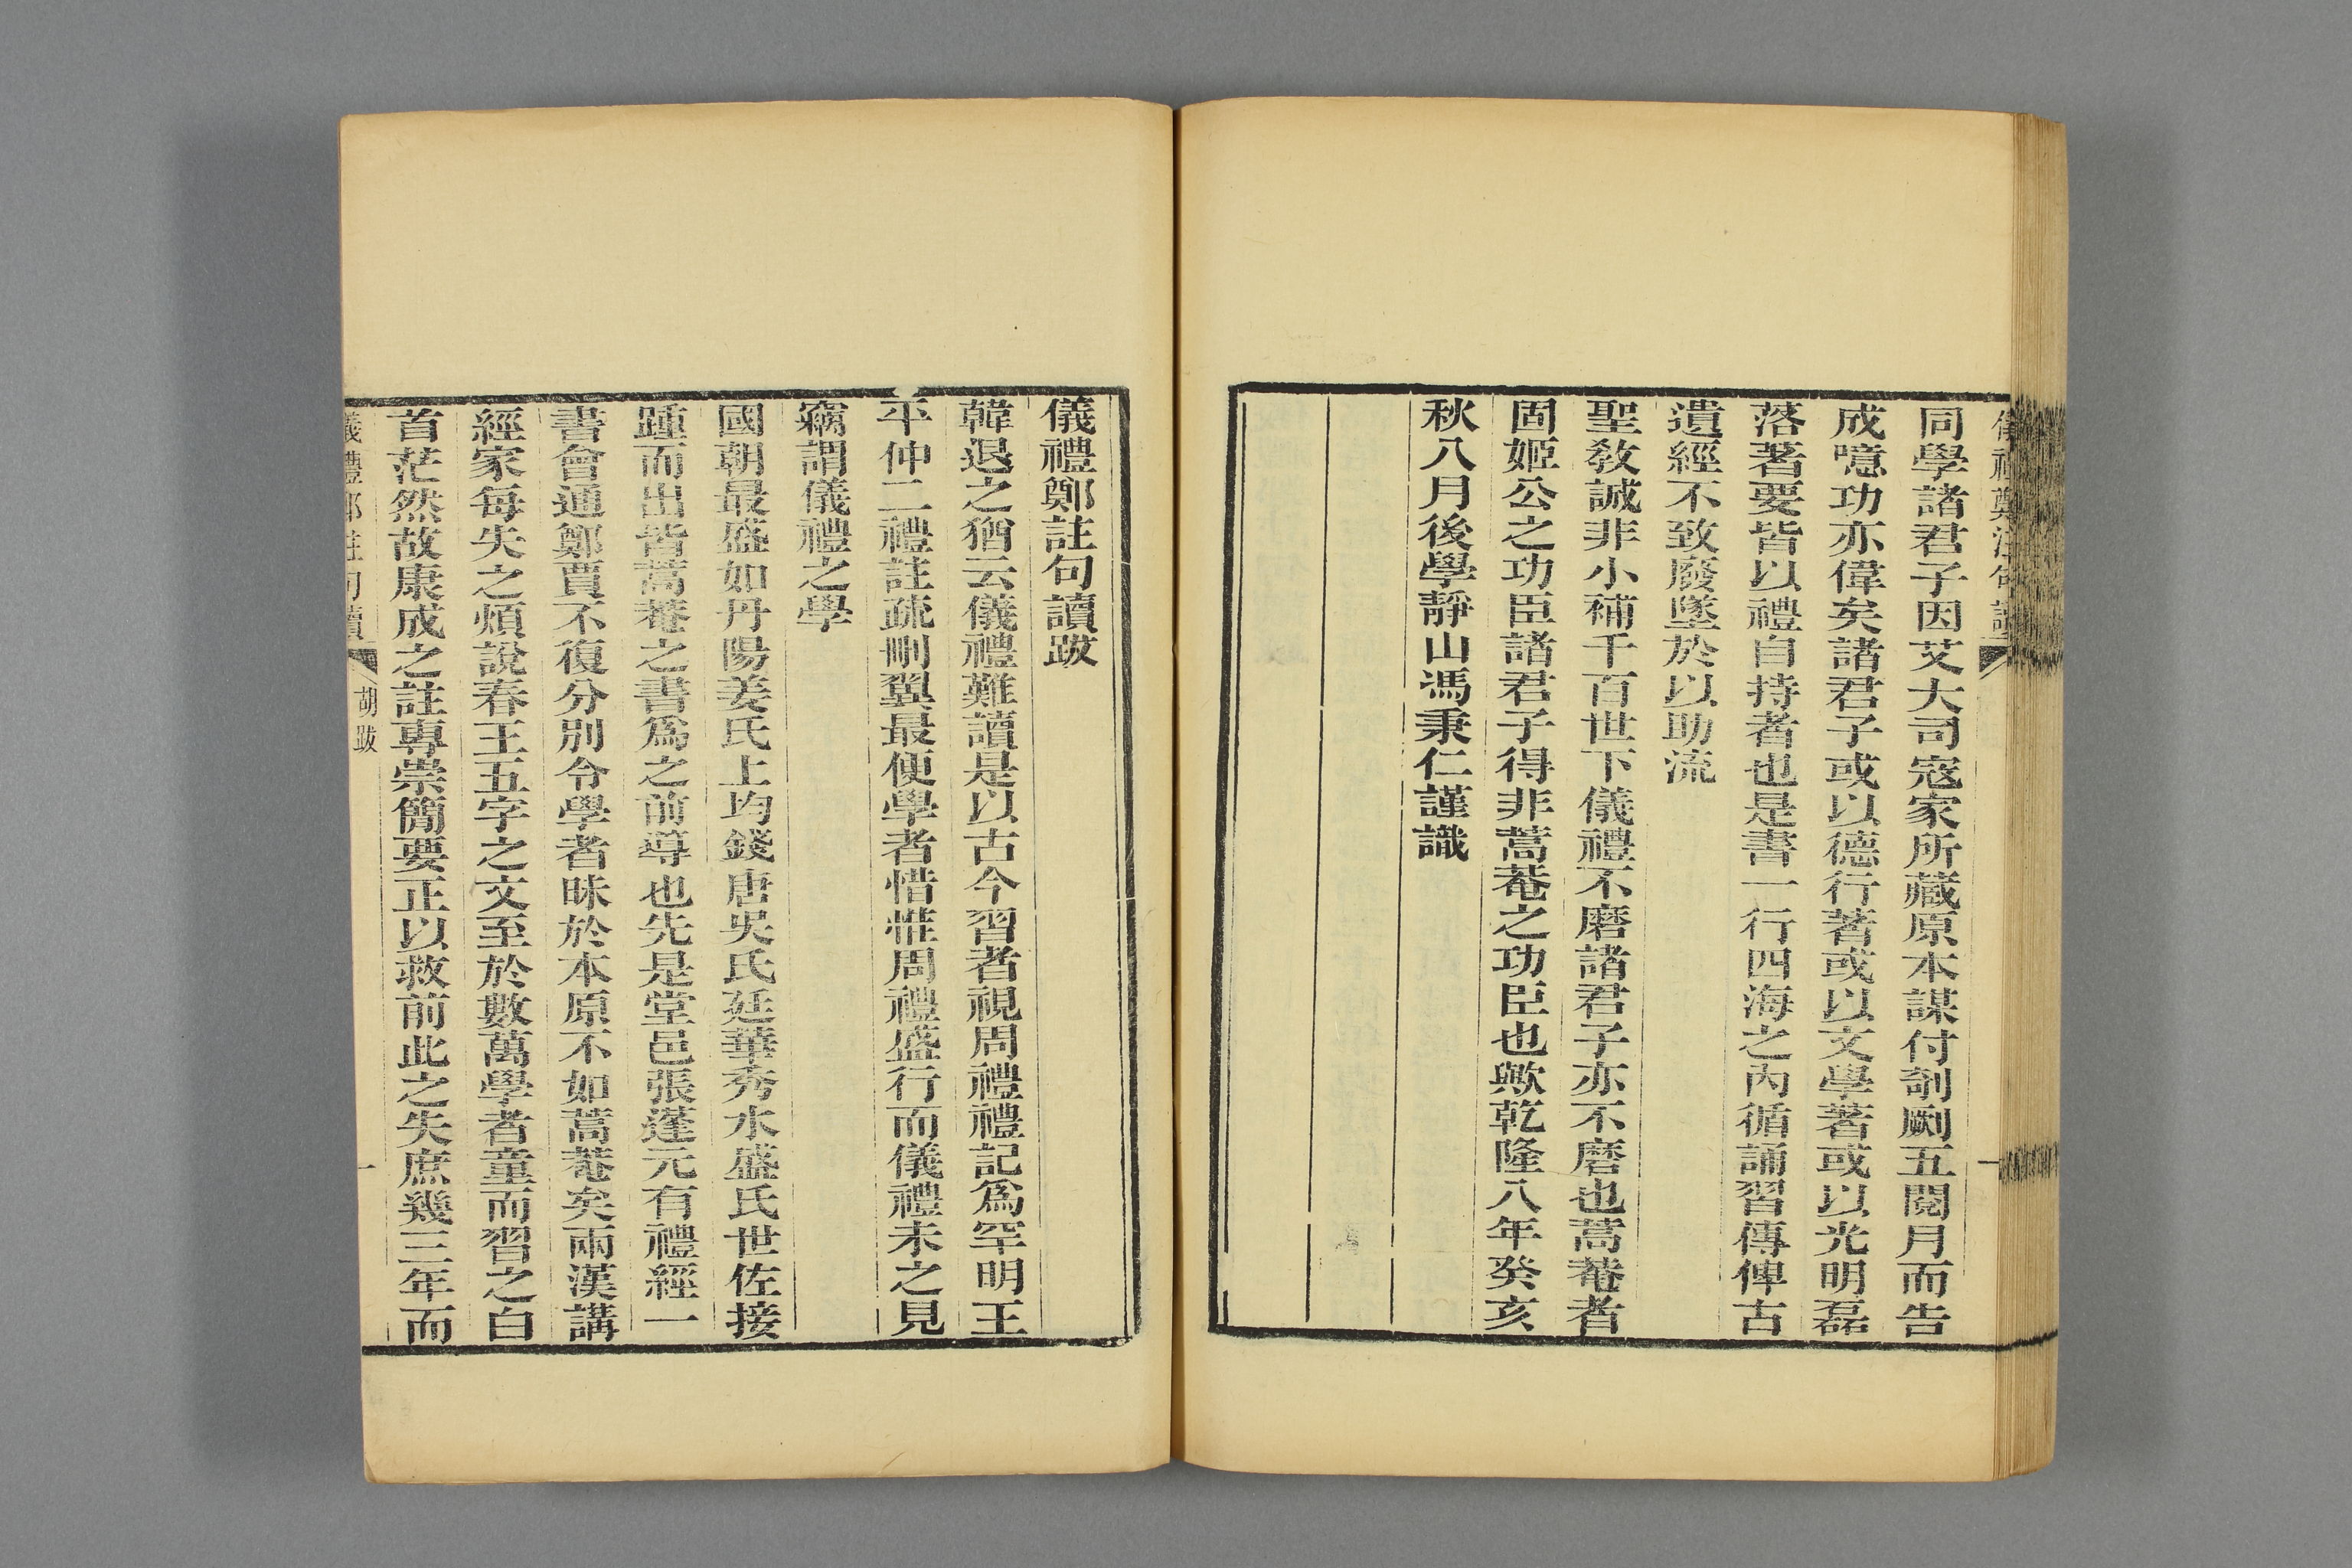 同學諸君子因艾大司寇家所藏原本謀付剞劂五閱月而告
成噫功亦偉矣諸君子或以德行著或以文學著或以光明磊
落著要皆以禮自持者也是書一行四海之內循誦習傳俾古
遺經不致廢墜於以助流
聖教誠非小補千百世下儀禮不磨諸君子亦不磨也蒿菴者
固姬公之功臣諸君子得非蒿菴之功臣也歟乾隆八年癸亥
秋八月後學靜山馮秉仁謹識
儀禮鄭註句讀跋
韓退之猶云儀禮難讀是以古今習者視周禮禮記爲罕明王
平仲二禮註疏刪翼最便學者惜惟周禮盛行而儀禮未之見
竊謂儀禮之學
國朝最盛如丹陽姜氏上均錢唐吳氏廷華秀水盛氏世佐接
踵而出皆蒿菴之書爲之前導也先是堂邑張蓬元有禮經一
書會通鄭賈不復分別令學者昧於本原不如蒿菴矣兩漢講
經家每失之煩說春王五字之文至於數萬學者童而習之白
首茫然故康成之註專崇簡要正以救前此之失庶幾三年而
儀禮鄭註句讀
胡跋
一